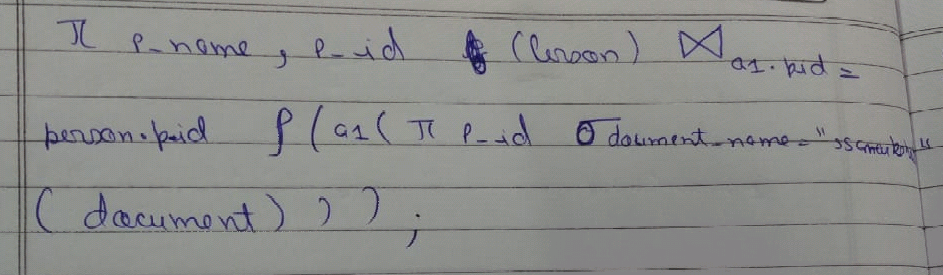 π P_name, P_id (Person) ⋈ a1.pid =
person.p_id ρ(a1(π P_id σ document_name="
(document)));